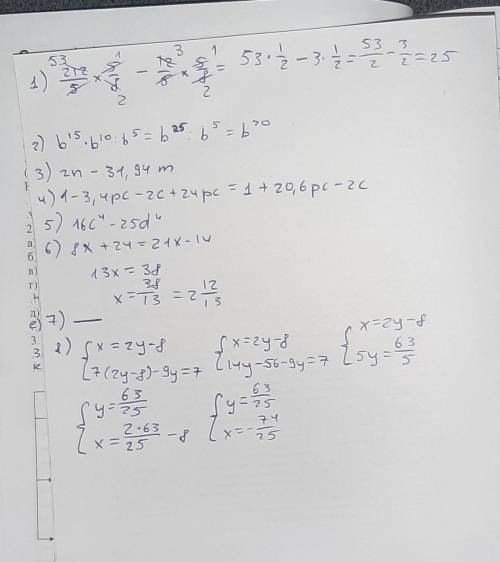 53 1 3 1
1) 212/5 × 5/8 2 − 12/5 × 5/8 2 = 53 · 1/2 − 3 · 1/2 = 53/2 − 3/2 = 25
2) b¹⁵ · b¹⁰ : b⁵ = b²⁵ : b⁵ = b²⁰
3) 2n − 31,94 m
4) 1 − 3,4pc − 2c + 24pc = 1 + 20,6pc − 2c
5) 16c⁴ − 25d⁴
6) 8x + 24 = 21x − 14
13x = 38
x = 38/13 = 2 12/13
7) —
8) { x = 2y − 8 { x = 2y − 8 { x = 2y − 8
7(2y − 8) − 9y = 7 14y − 56 − 9y = 7 5y = 63/5
{ y = 63/25 { y = 63/25
x = 2·63/25 − 8 x = − 74/25
2
а.
б.
в)
г)
д)
е)
3.
3
к